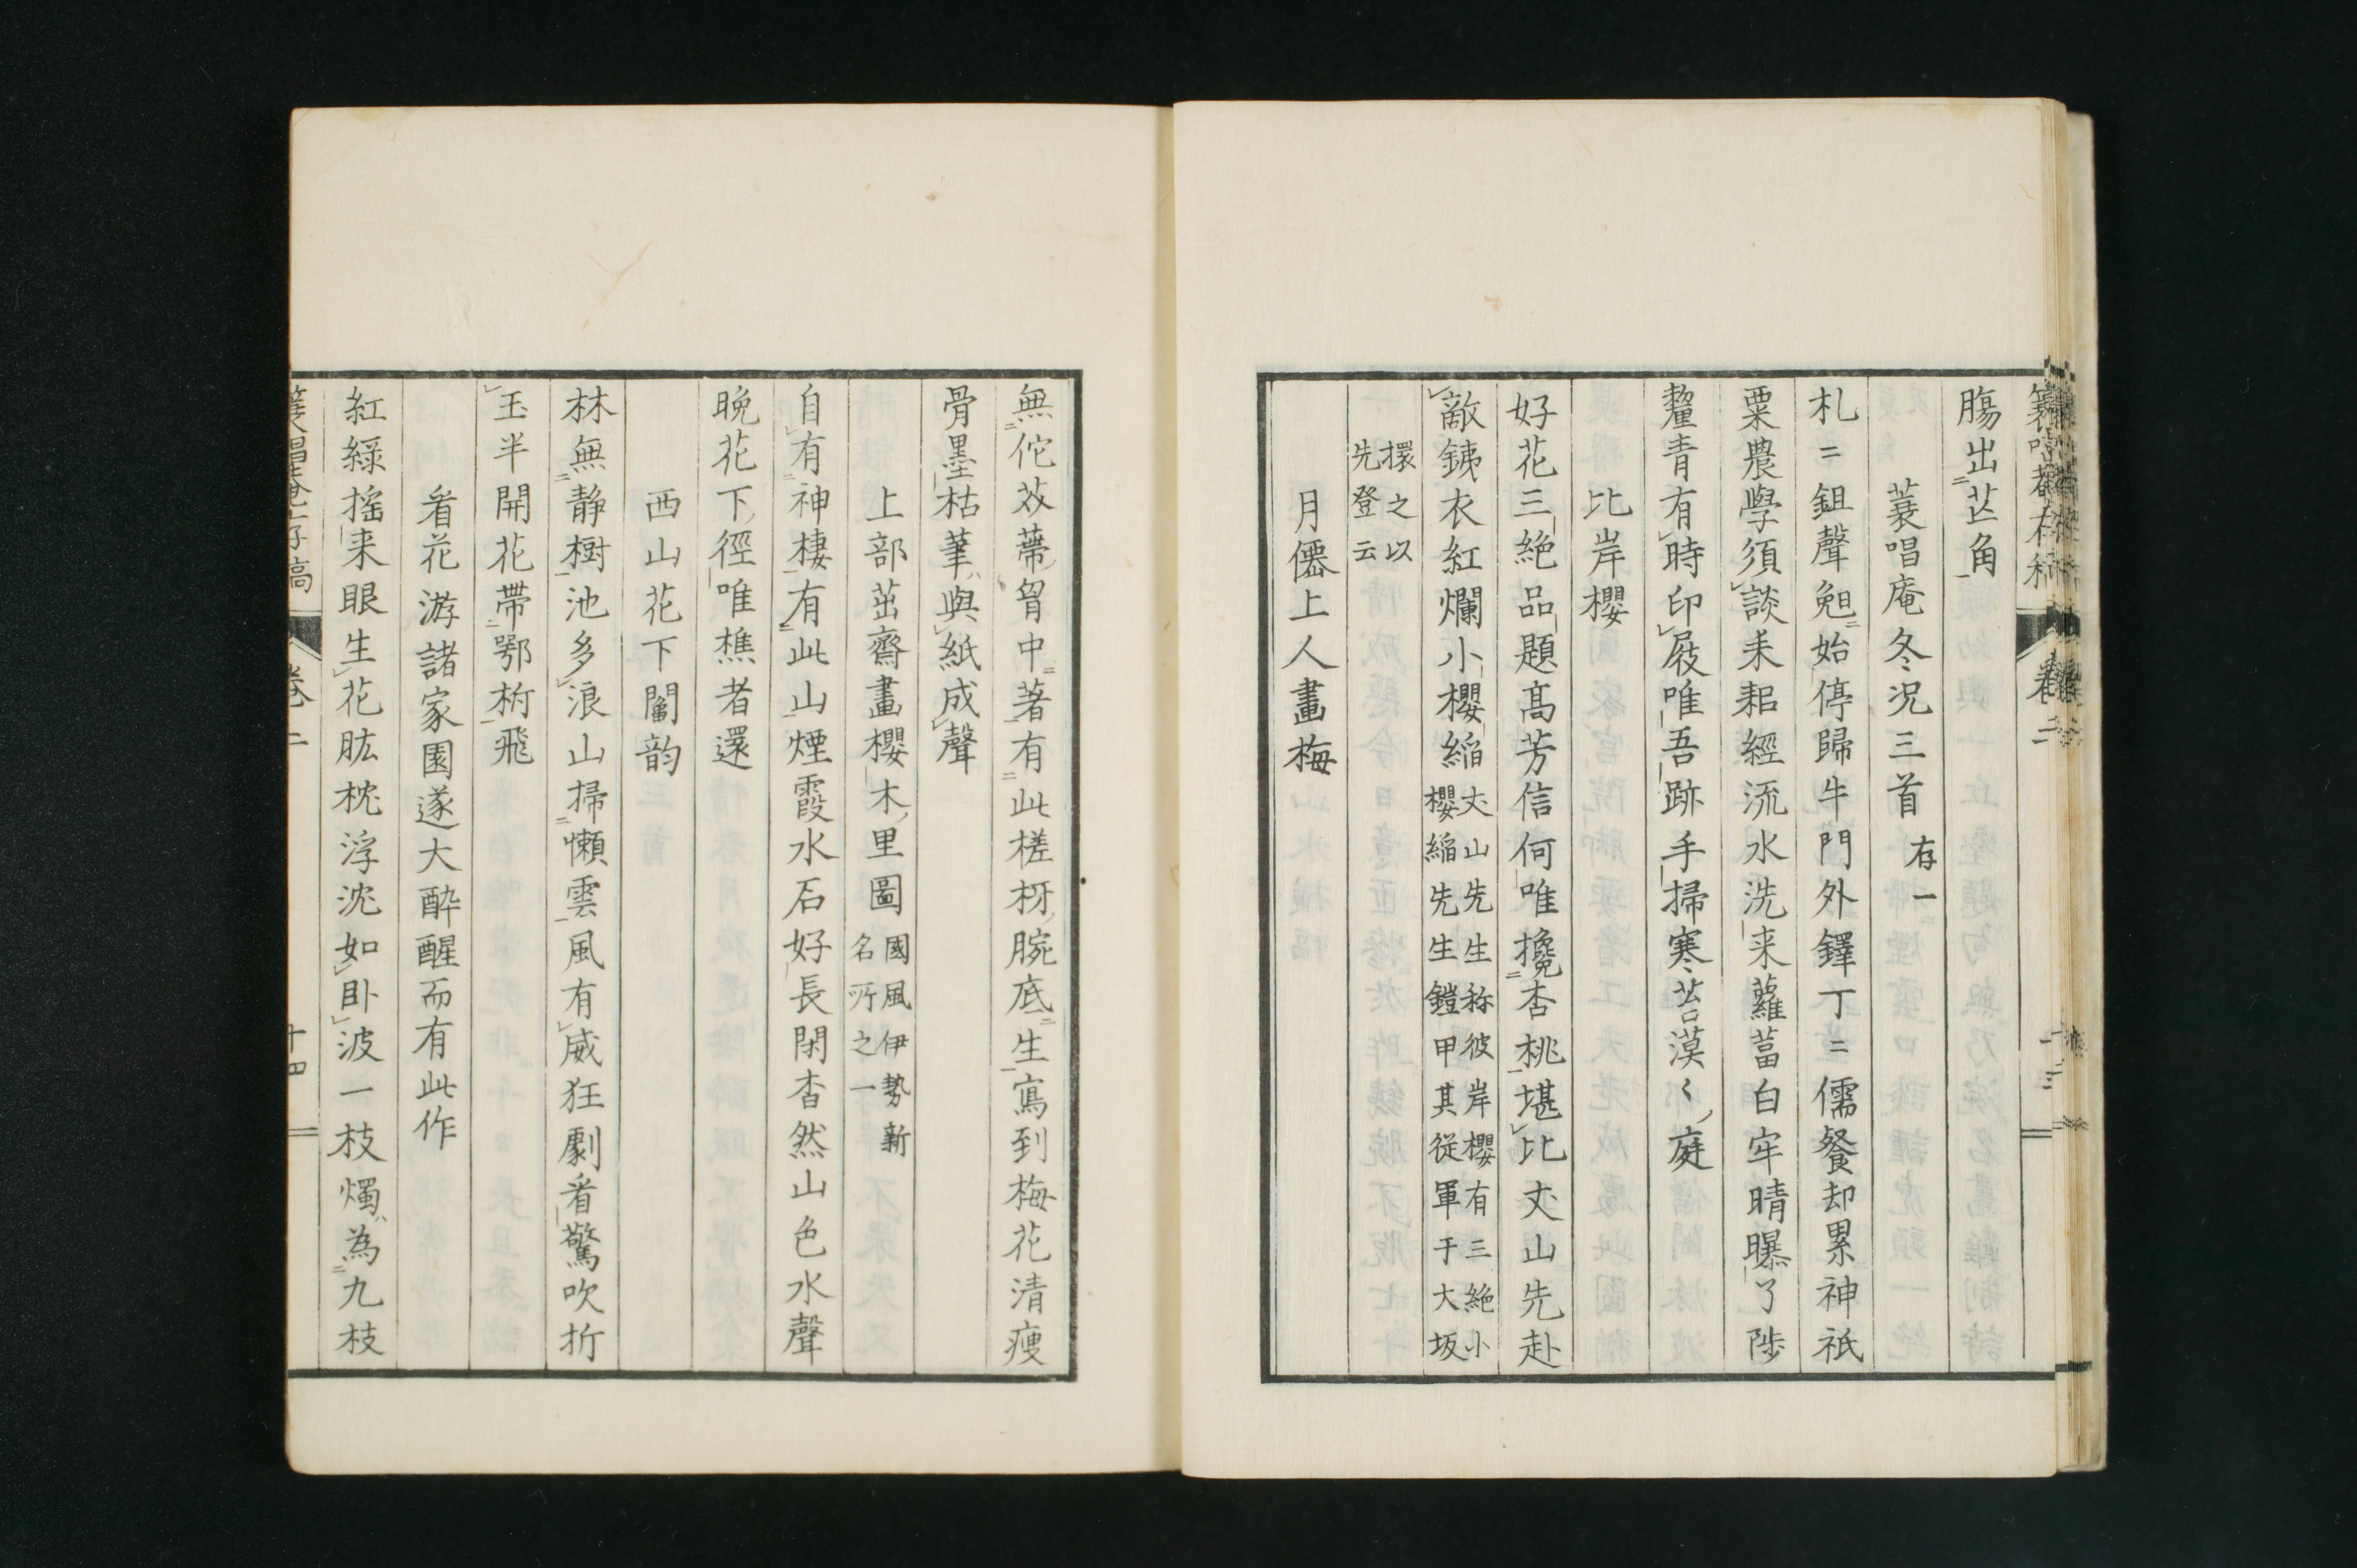 腸出芒角
蓑唱庵冬況三首 存一
札〻鉏聲兔始停歸牛門外鐸丁〻儒餐却累神祇
粟農學須談耒耜經流水洗来蘿葍白牢晴曝了陟
釐青有時印屐唯吾跡手掃寒苔漠〻庭
比岸櫻
好花三絶品題髙芳信何唯攙杏桃堪比丈山先赴
敵銕衣紅爛小櫻縚丈山先生称彼岸櫻有三絶小
櫻縚先生鎧甲其従軍于大坂
擐之以
先登云
月僊上人畫梅
無佗芥蔕胷中著有此槎枒腕底生寫到梅花清痩
骨墨枯筆與紙成聲
上部茁齋畫櫻木里圖國風伊勢新
名所之一
自有神棲有此山煙霞水石好長閑杳然山色水聲
晩花下徑唯樵者還
西山花下鬮韵
林無静樹池多浪山掃懶雲風有威狂劇看驚吹折
玉半開花帶鄂柎飛
看花游諸家園遂大酔醒而有此作
紅綠揺来眼生花肱枕浮沈如卧波一枝燭為九枝
蓑唱菴存稿 卷二 十四